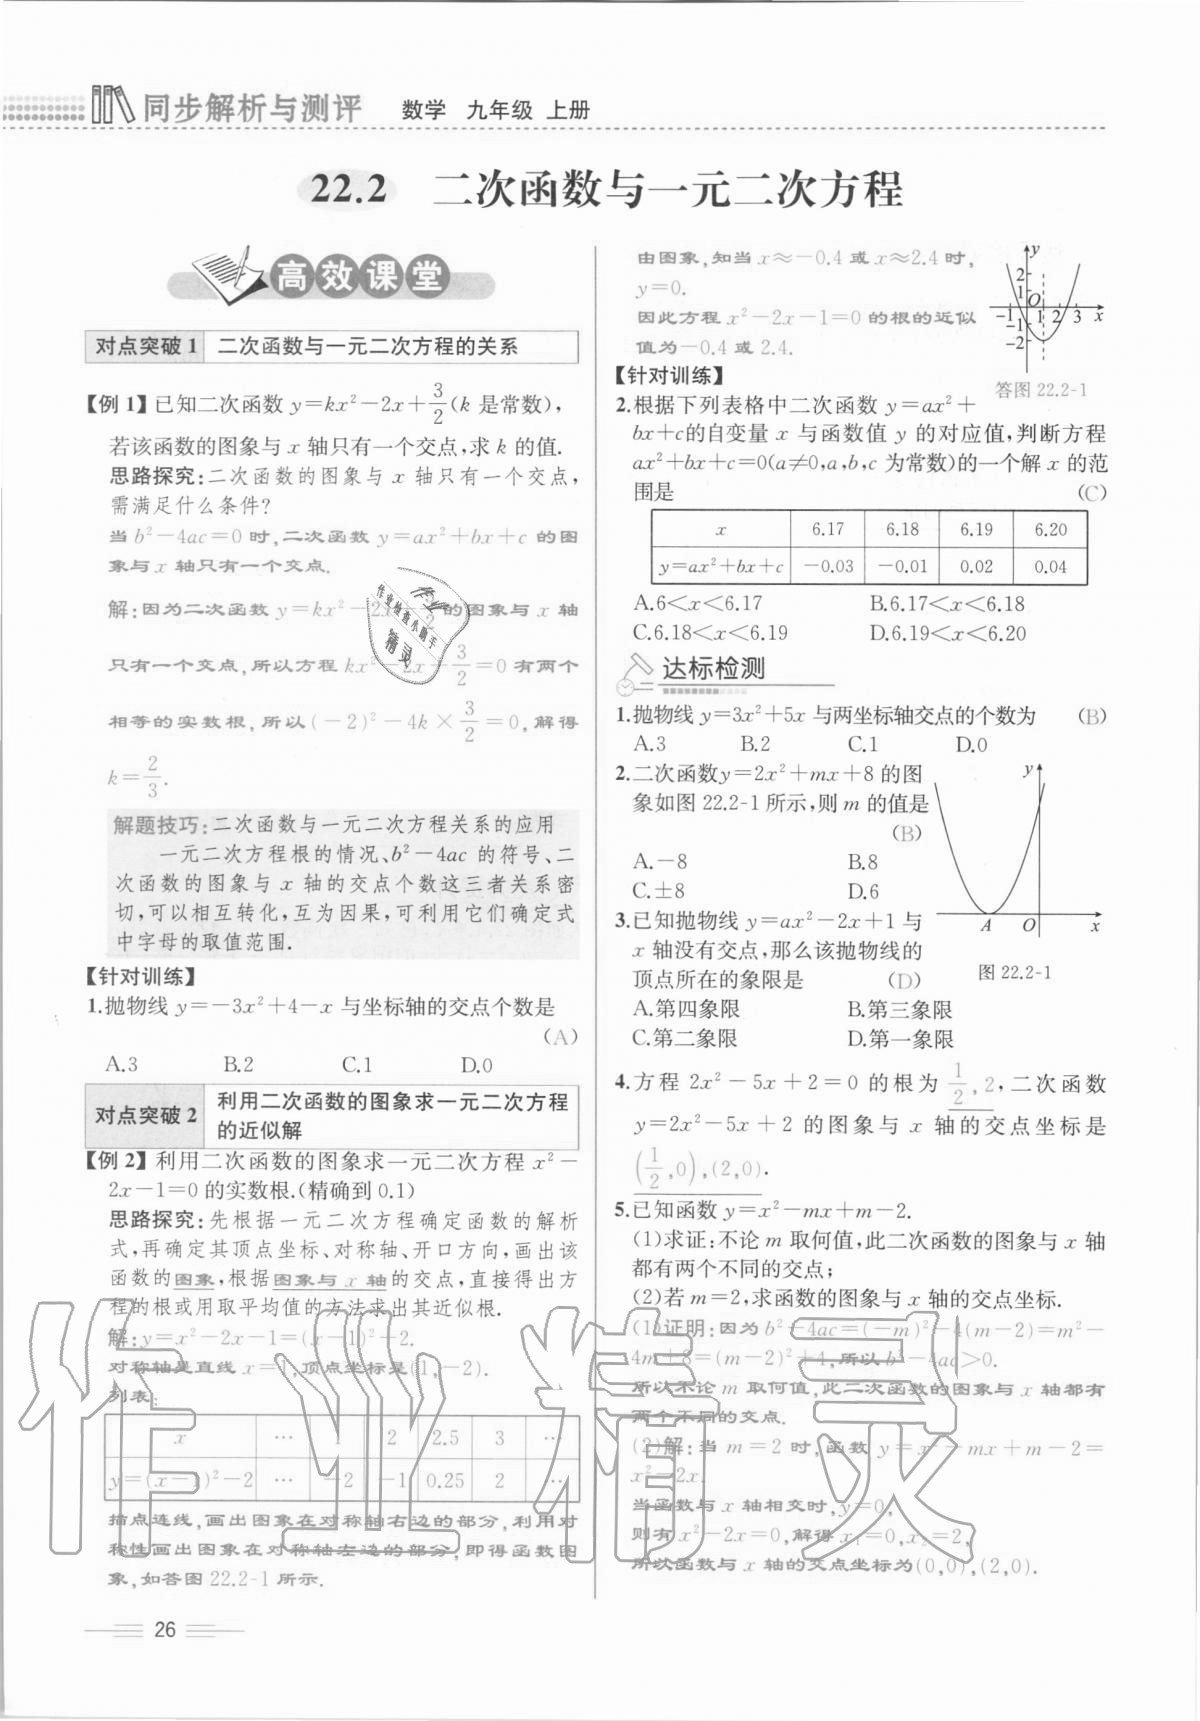 同步解析与测评 数学 九年级 上册
22.2 二次函数与一元二次方程
高效课堂
对点突破1 二次函数与一元二次方程的关系
【例1】已知二次函数 y=kx²-2x+3/2(k 是常数),
若该函数的图象与 x 轴只有一个交点,求 k 的值.
思路探究:二次函数的图象与 x 轴只有一个交点,
需满足什么条件?
当 b²-4ac=0 时,二次函数 y=ax²+bx+c 的图
象与 x 轴只有一个交点.
解:因为二次函数 y=kx²-2x+3/2 的图象与 x 轴
只有一个交点,所以方程 kx²-2x+3/2=0 有两个
相等的实数根,所以(-2)²-4k×3/2=0,解得
k=2/3.
解题技巧:二次函数与一元二次方程关系的应用
一元二次方程根的情况、b²-4ac 的符号、二
次函数的图象与 x 轴的交点个数这三者关系密
切,可以相互转化,互为因果,可利用它们确定式
中字母的取值范围.
【针对训练】
1.抛物线 y=-3x²+4-x 与坐标轴的交点个数是
(A)
A.3 B.2 C.1 D.0
对点突破2 利用二次函数的图象求一元二次方程
的近似解
【例2】利用二次函数的图象求一元二次方程 x²-
2x-1=0 的实数根.(精确到 0.1)
思路探究:先根据一元二次方程确定函数的解析
式,再确定其顶点坐标、对称轴、开口方向,画出该
函数的图象,根据图象与 x 轴的交点,直接得出方
程的根或用取平均值的方法求出其近似根.
解:y=x²-2x-1=(x-1)²-2.
对称轴是直线 x=1,顶点坐标是(1,-2).
列表:
x … 1 2 2.5 3 …
y=(x-1)²-2 … -2 -1 0.25 2 …
描点连线,画出图象在对称轴右边的部分,利用对
称性画出图象在对称轴左边的部分,即得函数图
象,如答图 22.2-1 所示.
26
由图象,知当 x≈-0.4 或 x≈2.4 时,
y=0.
因此方程 x²-2x-1=0 的根的近似
值为-0.4 或 2.4.
y
2
1
O
-1 1 2 3 x
-1
-2
答图 22.2-1
【针对训练】
2.根据下列表格中二次函数 y=ax²+
bx+c的自变量 x 与函数值 y 的对应值,判断方程
ax²+bx+c=0(a≠0,a,b,c 为常数)的一个解 x 的范
围是 (C)
x 6.17 6.18 6.19 6.20
y=ax²+bx+c -0.03 -0.01 0.02 0.04
A.6<x<6.17 B.6.17<x<6.18
C.6.18<x<6.19 D.6.19<x<6.20
达标检测
1.抛物线 y=3x²+5x 与两坐标轴交点的个数为 (B)
A.3 B.2 C.1 D.0
2.二次函数y=2x²+mx+8 的图
象如图 22.2-1 所示,则 m 的值是
(B)
A.-8 B.8
C.±8 D.6
y
A O x
图 22.2-1
3.已知抛物线 y=ax²-2x+1 与
x 轴没有交点,那么该抛物线的
顶点所在的象限是 (D)
A.第四象限 B.第三象限
C.第二象限 D.第一象限
4.方程 2x²-5x+2=0 的根为 1/2,2,二次函数
y=2x²-5x+2 的图象与 x 轴的交点坐标是
(1/2,0),(2,0).
5.已知函数 y=x²-mx+m-2.
(1)求证:不论 m 取何值,此二次函数的图象与 x 轴
都有两个不同的交点;
(2)若 m=2,求函数的图象与 x 轴的交点坐标.
(1)证明:因为 b²-4ac=(-m)²-4(m-2)=m²-
4m+8=(m-2)²+4,所以 b²-4ac>0.
所以不论 m 取何值,此二次函数的图象与 x 轴都有
两个不同的交点.
(2)解:当 m=2 时,函数 y=x²-mx+m-2=
x²-2x.
当函数与 x 轴相交时,y=0,
则有 x²-2x=0,解得 x₁=0,x₂=2,
所以函数与 x 轴的交点坐标为(0,0),(2,0).
作业
作业检查小助手
精灵
作业精灵